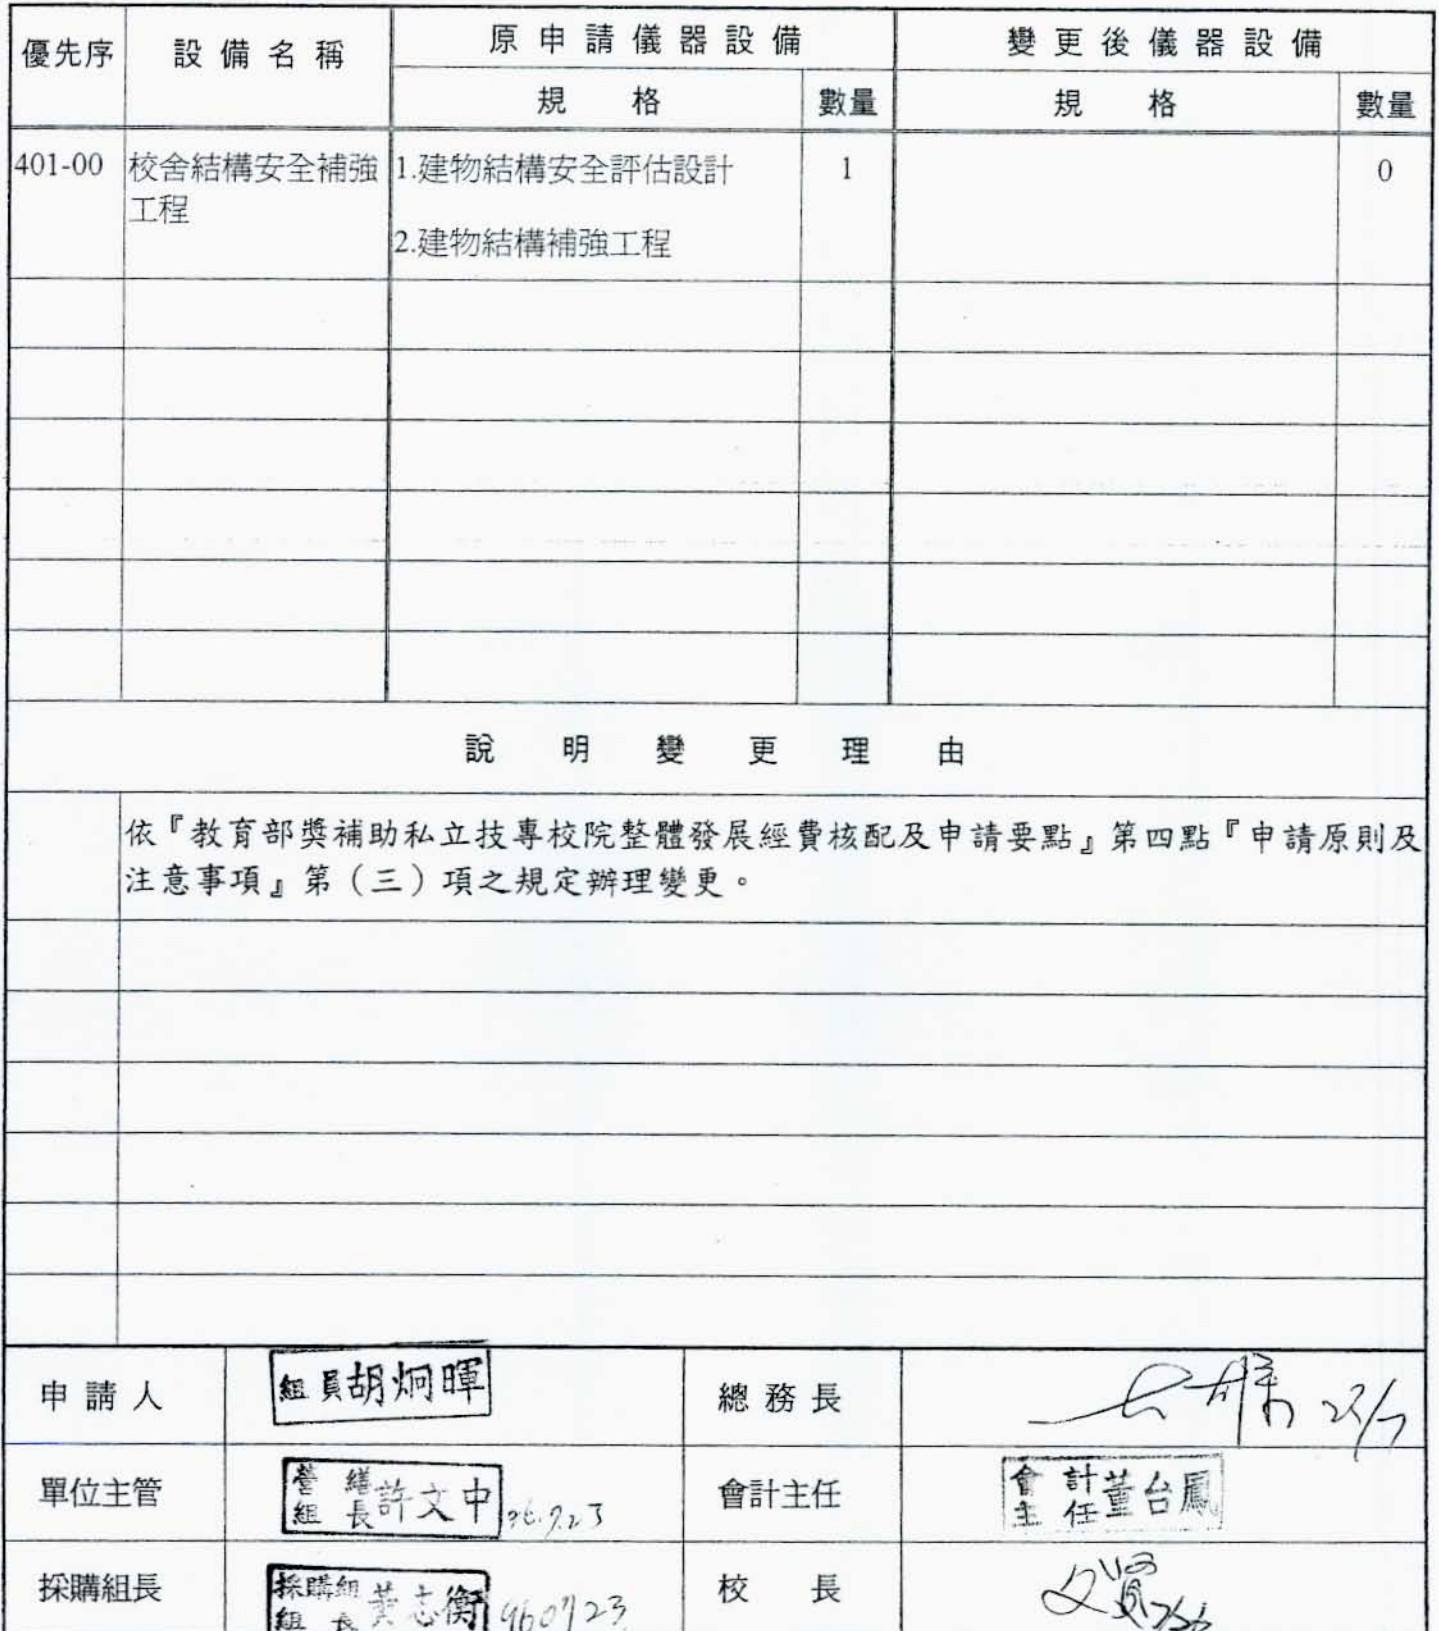 優先序 設備名稱 原申請儀器設備 變更後儀器設備
規格 數量 規格 數量
401-00 校舍結構安全補強 1.建物結構安全評估設計 1 0
工程
2.建物結構補強工程
說明變更理由
依『教育部獎補助私立技專校院整體發展經費核配及申請要點』第四點『申請原則及
注意事項』第（三）項之規定辦理變更。
申請人 組員胡炯暉 總務長 23/7
單位主管 營繕組長許文中 96.7.23 會計主任 會計主任董台鳳
採購組長 採購組組長黃志衡 960723 校長